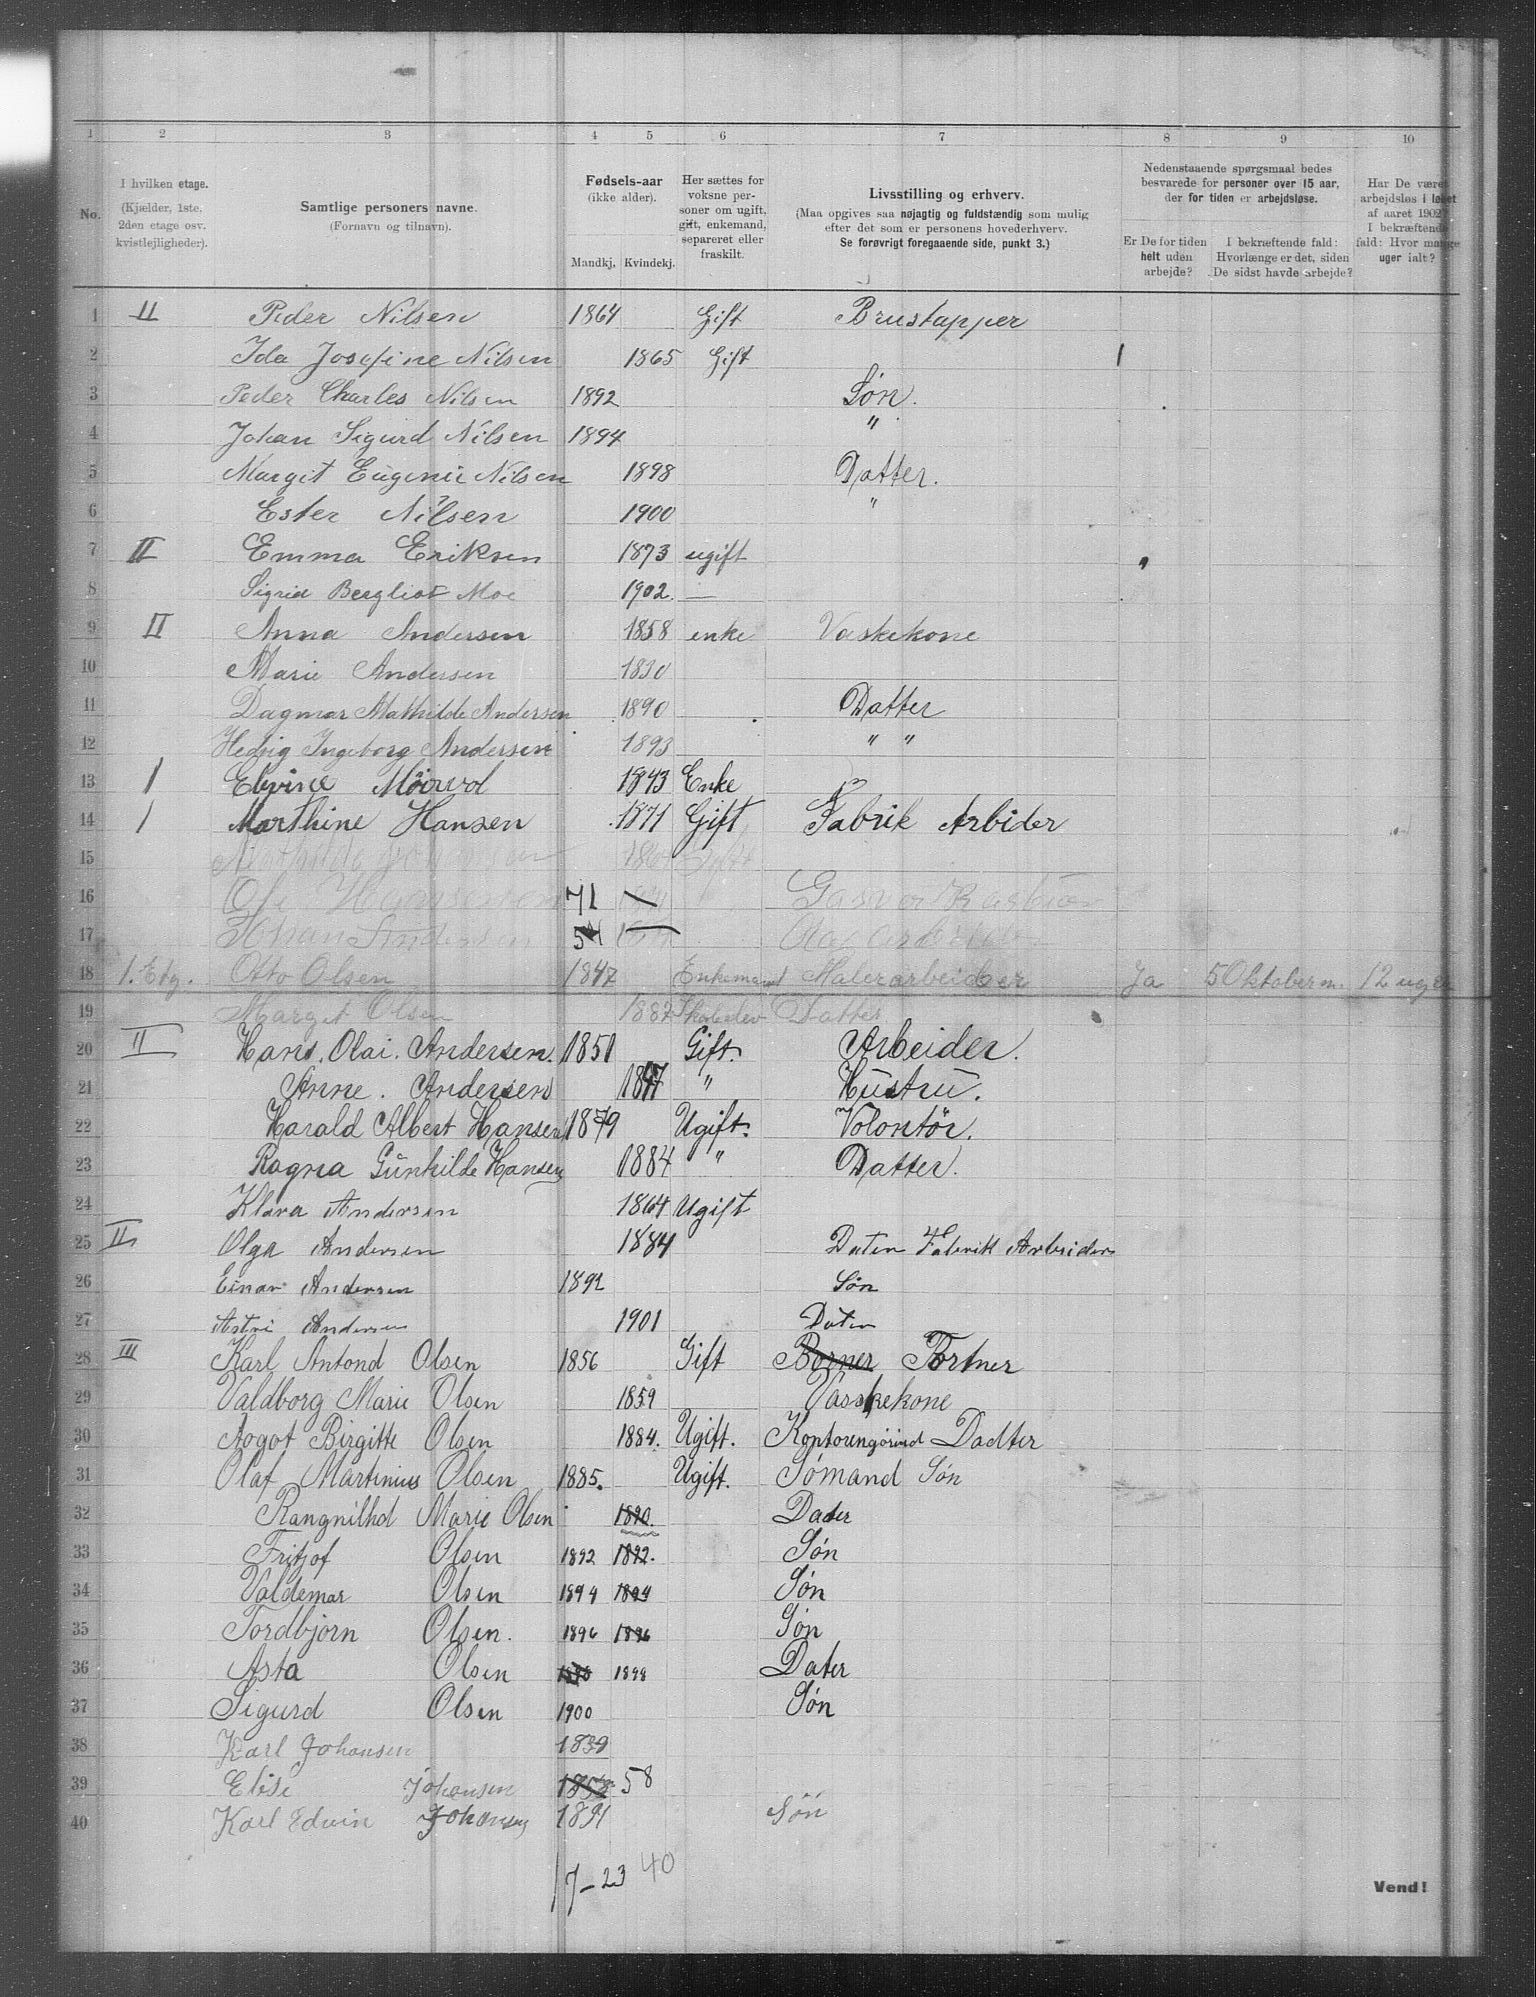 1 2 3 4 5 6 7 8 9 10
No.
I hvilken etage.
(Kjælder, 1ste.
2den etage osv.
kvistlejligheder).
Samtlige personers navne.
(Fornavn og tilnavn).
Fødsels-aar
(ikke alder).
Mandkj. Kvindekj.
Her sættes for
voksne per-
soner om ugift,
gift, enkemand,
separeret eller
fraskilt.
Livsstilling og erhverv.
(Maa opgives saa nøjagtig og fuldstændig som mulig
efter det som er personens hovederhverv.
Se forøvrigt foregaaende side, punkt 3.)
Nedenstaaende spørgsmaal bedes
besvarede for personer over 15 aar,
der for tiden er arbejdsløse.
Er De for tiden
helt uden
arbejde?
I bekræftende fald:
Hvorlænge er det, siden
De sidst havde arbejde?
Har De været
arbejdsløs i løbet
af aaret 1902?
I bekræftende
fald: Hvor mange
uger ialt?
1 II Peder Nilsen 1864 Gift Brustapper
2 Ida Josefine Nilsen 1865 Gift
3 Peder Charles Nilsen 1892 Søn.
4 Johan Sigurd Nilsen 1894 "
5 Margit Eugenie Nilsen 1898 Datter.
6 Ester Nilsen 1900 "
7 II Emma Eriksen 1873 ugift
8 Sigrid Bergliot Moe 1902. —
9 II Anna Andersen 1858 enke Vaskekone
10 Marie Andersen 1830
11 Dagmar Mathilde Andersen 1890 Datter
12 Hedvig Ingeborg Andersen 1893 " "
13 1 Elvine 1843 Enke
14 1 Marthine Hansen 1871 Gift Fabrik Arbider
15
16 Ole 71
17
18 1. Etg. Otto Olsen 1847 Enkemand Malerarbeider Ja 5 Oktober 12 uger
19 Margit Olsen 1887 Datter
20 II Hans. Olai. Andersen. 1851 Gift. Arbeider.
21 Anne. Andersen 1847 " Hustru.
22 Harald Albert Hansen 1879 Ugift. Volontör.
23 Ragna Gunhilde Hansen 1884 " Datter.
24 Klara Andersen 1864 Ugift
25 II Olga Andersen 1884 Daten Fabrikk Arbeider
26 Einar Andersen 1892 Søn
27 Astri Andersen 1901 Daten
28 III Karl Antond Olsen 1856 Gift Borner Portner
29 Valdborg Marie Olsen 1859 Vasskekone
30 Aogot Birgitte Olsen 1884. Ugift. Dadter
31 Olaf Martinius Olsen 1885. Ugift. Sømand Søn
32 Rangnilhd Marie Olsen 1890. Dater
33 Fritjof Olsen 1892 1892. Søn
34 Valdemar Olsen 1894 1894 Søn
35 Tordbjørn Olsen. 1896 1896 Søn
36 Asta Olsen 1898 1898 Dater
37 Sigurd Olsen 1900 Søn
38 Karl Johansen 1839
39 Elise Johansen 1858 58
40 Karl Edvin Johansen 1891 Søn
17-23 40
Vend!